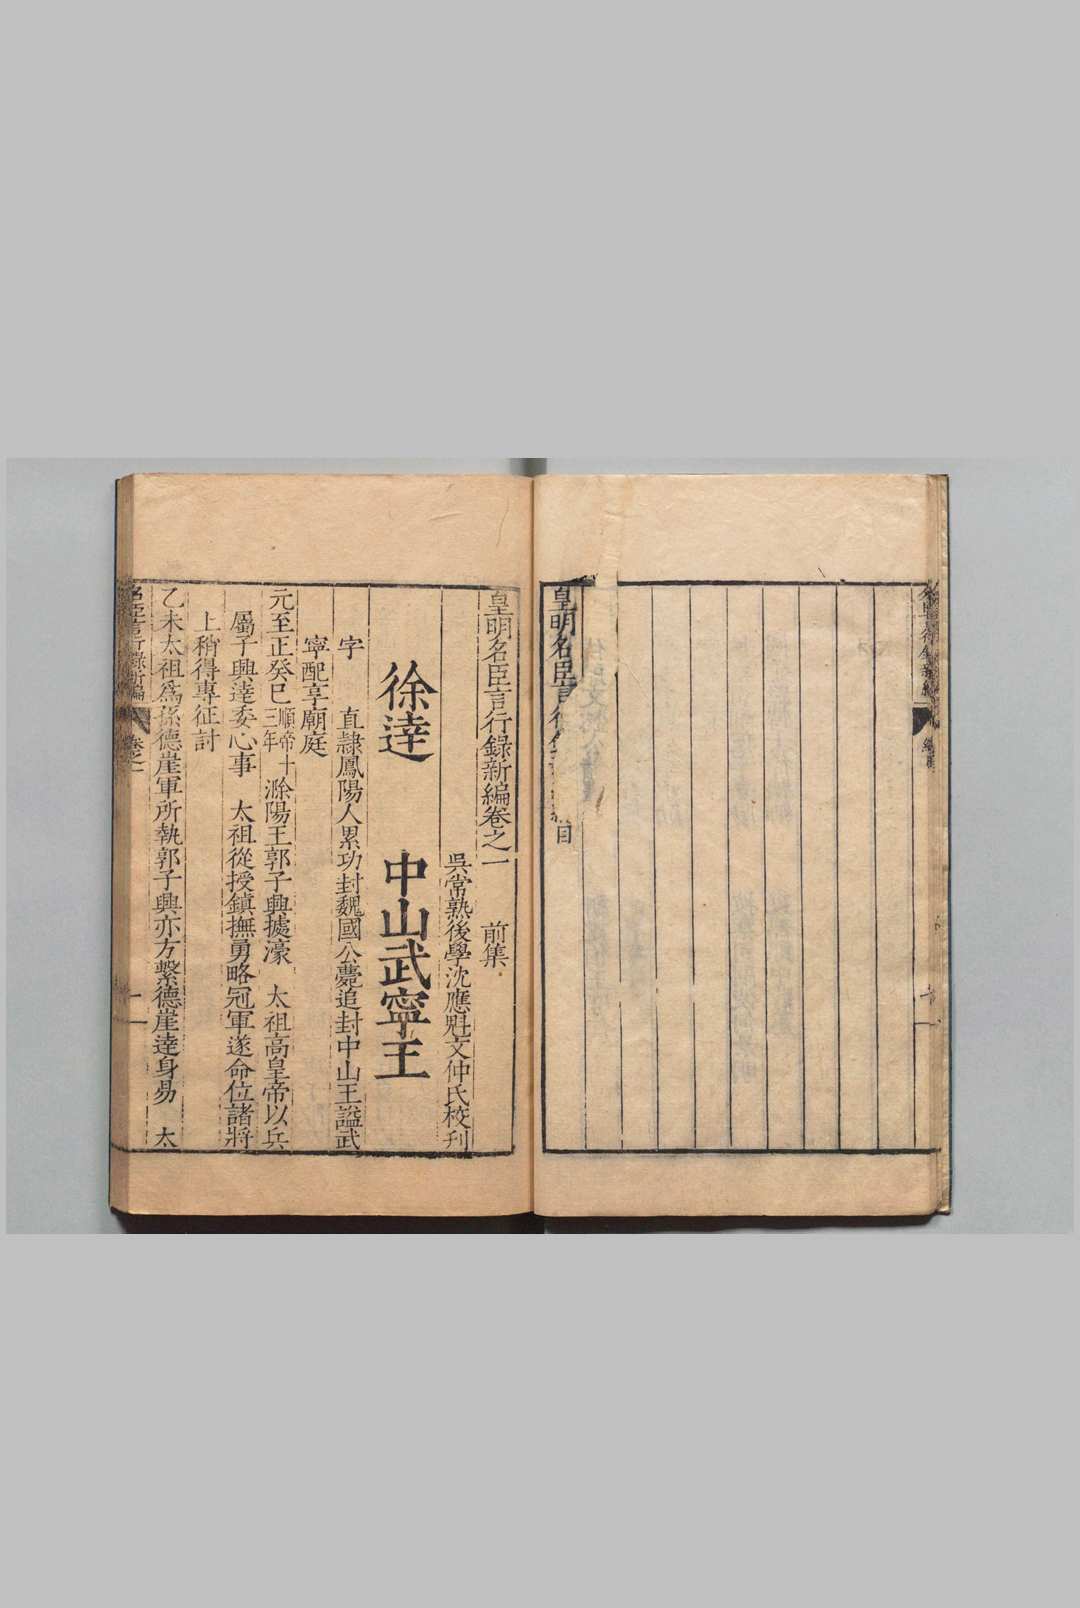 皇明名臣言行
目
皇明名臣言行錄新編卷之一　前集
吳常熟後學沈應魁文仲氏校刊
徐達　中山武寧王
字　直隷鳳陽人累功封魏國公薨追封中山王謚武
寧配享廟庭
元至正癸巳順帝十三年滁陽王郭子興據濠　太祖高皇帝以兵
屬子興達委心事　太祖從授鎮撫勇略冠軍遂命位諸將
上稍得專征討
乙未太祖爲孫德崖軍所執郭子興亦方繫德崖達身易　太
名臣言行錄新編　卷之一　一